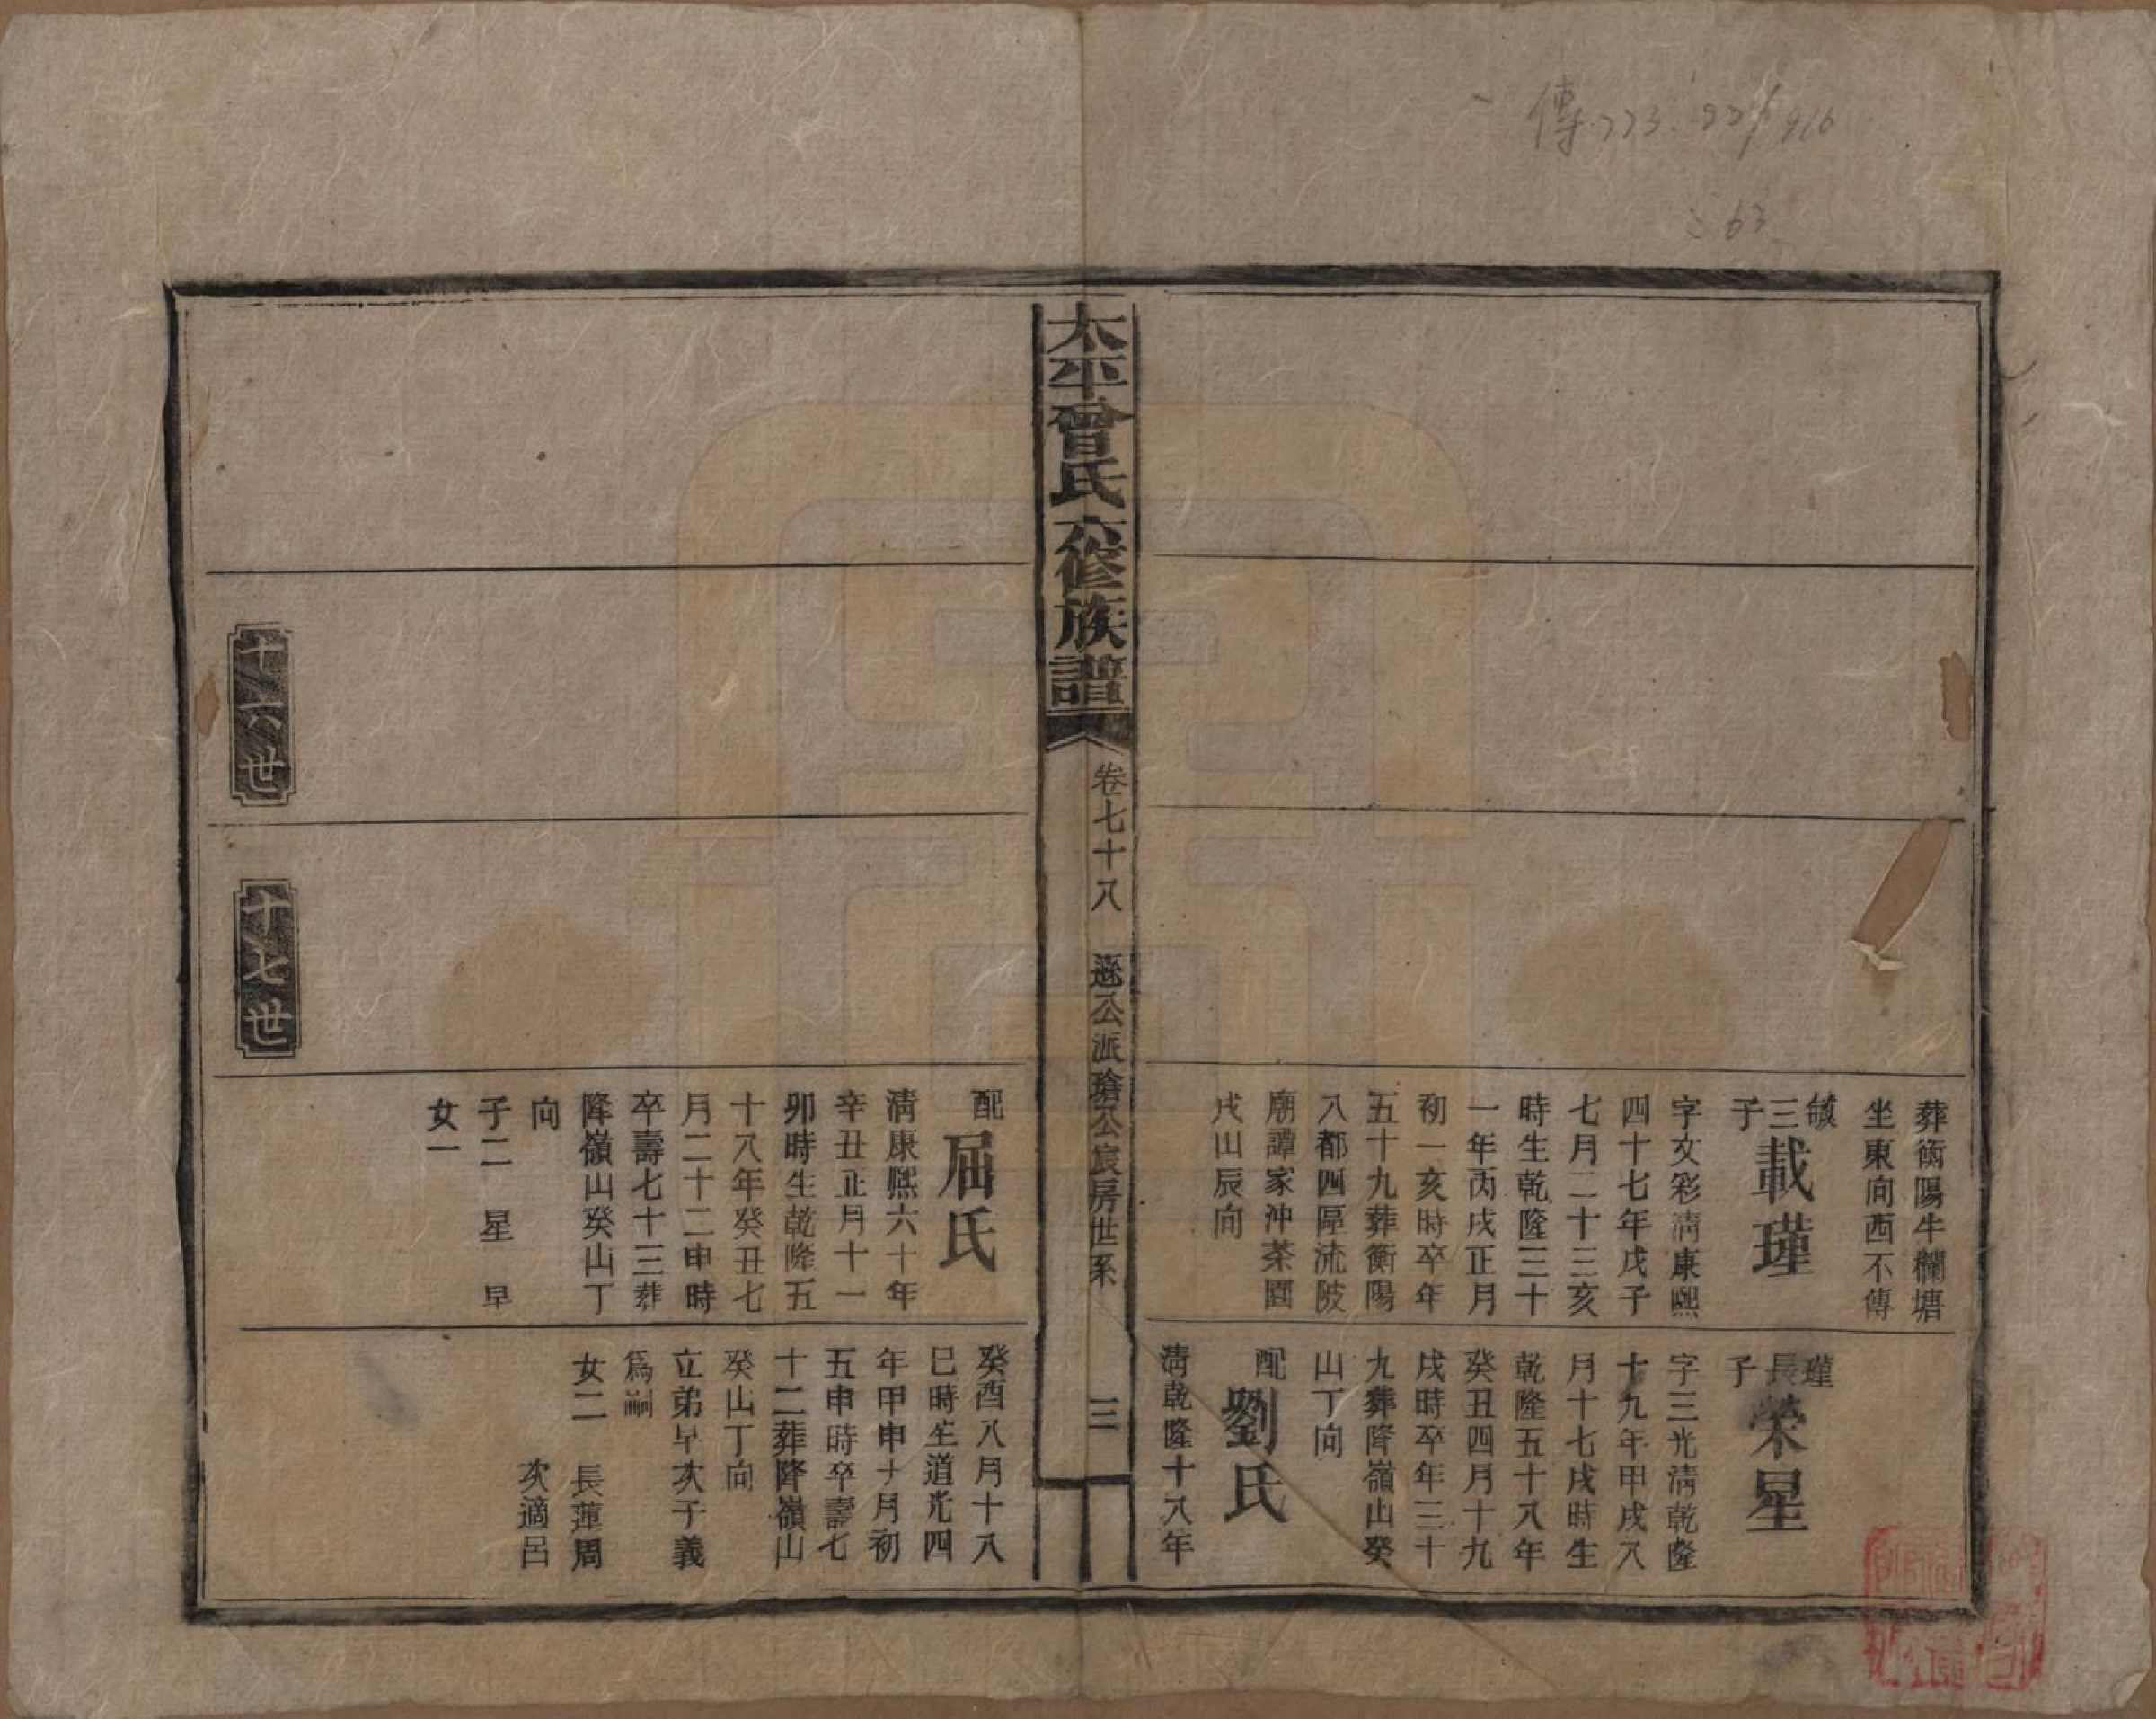 太平曾氏六修族譜
卷七十八
遜公派瑲公宸房世系
三
葬衡陽牛欄塘
坐東向西不傳
毓三子
載瑾
字文彩清康熙
四十七年戊子
七月二十三亥
時生乾隆三十
一年丙戌正月
初一亥時卒年
五十九葬衡陽
八都四區流陂
廟譚家沖茶園
戌山辰向
配
屈氏
清康熙六十年
辛丑正月十一
卯時生乾隆五
十八年癸丑七
月二十二申時
卒壽七十三葬
降嶺山癸山丁
向
子二 星 早
女一
瑾長子
榮星
字三光清乾隆
十九年甲戌八
月十七戌時生
乾隆五十八年
癸丑四月十九
戌時卒年三十
九葬降嶺山癸
山丁向
配
劉氏
清乾隆十八年
癸酉八月十八
巳時生道光四
年甲申十月初
五申時卒壽七
十二葬降嶺山
癸山丁向
立弟早次子義
為嗣
女二 長蓮周
次適呂
十六世
十七世